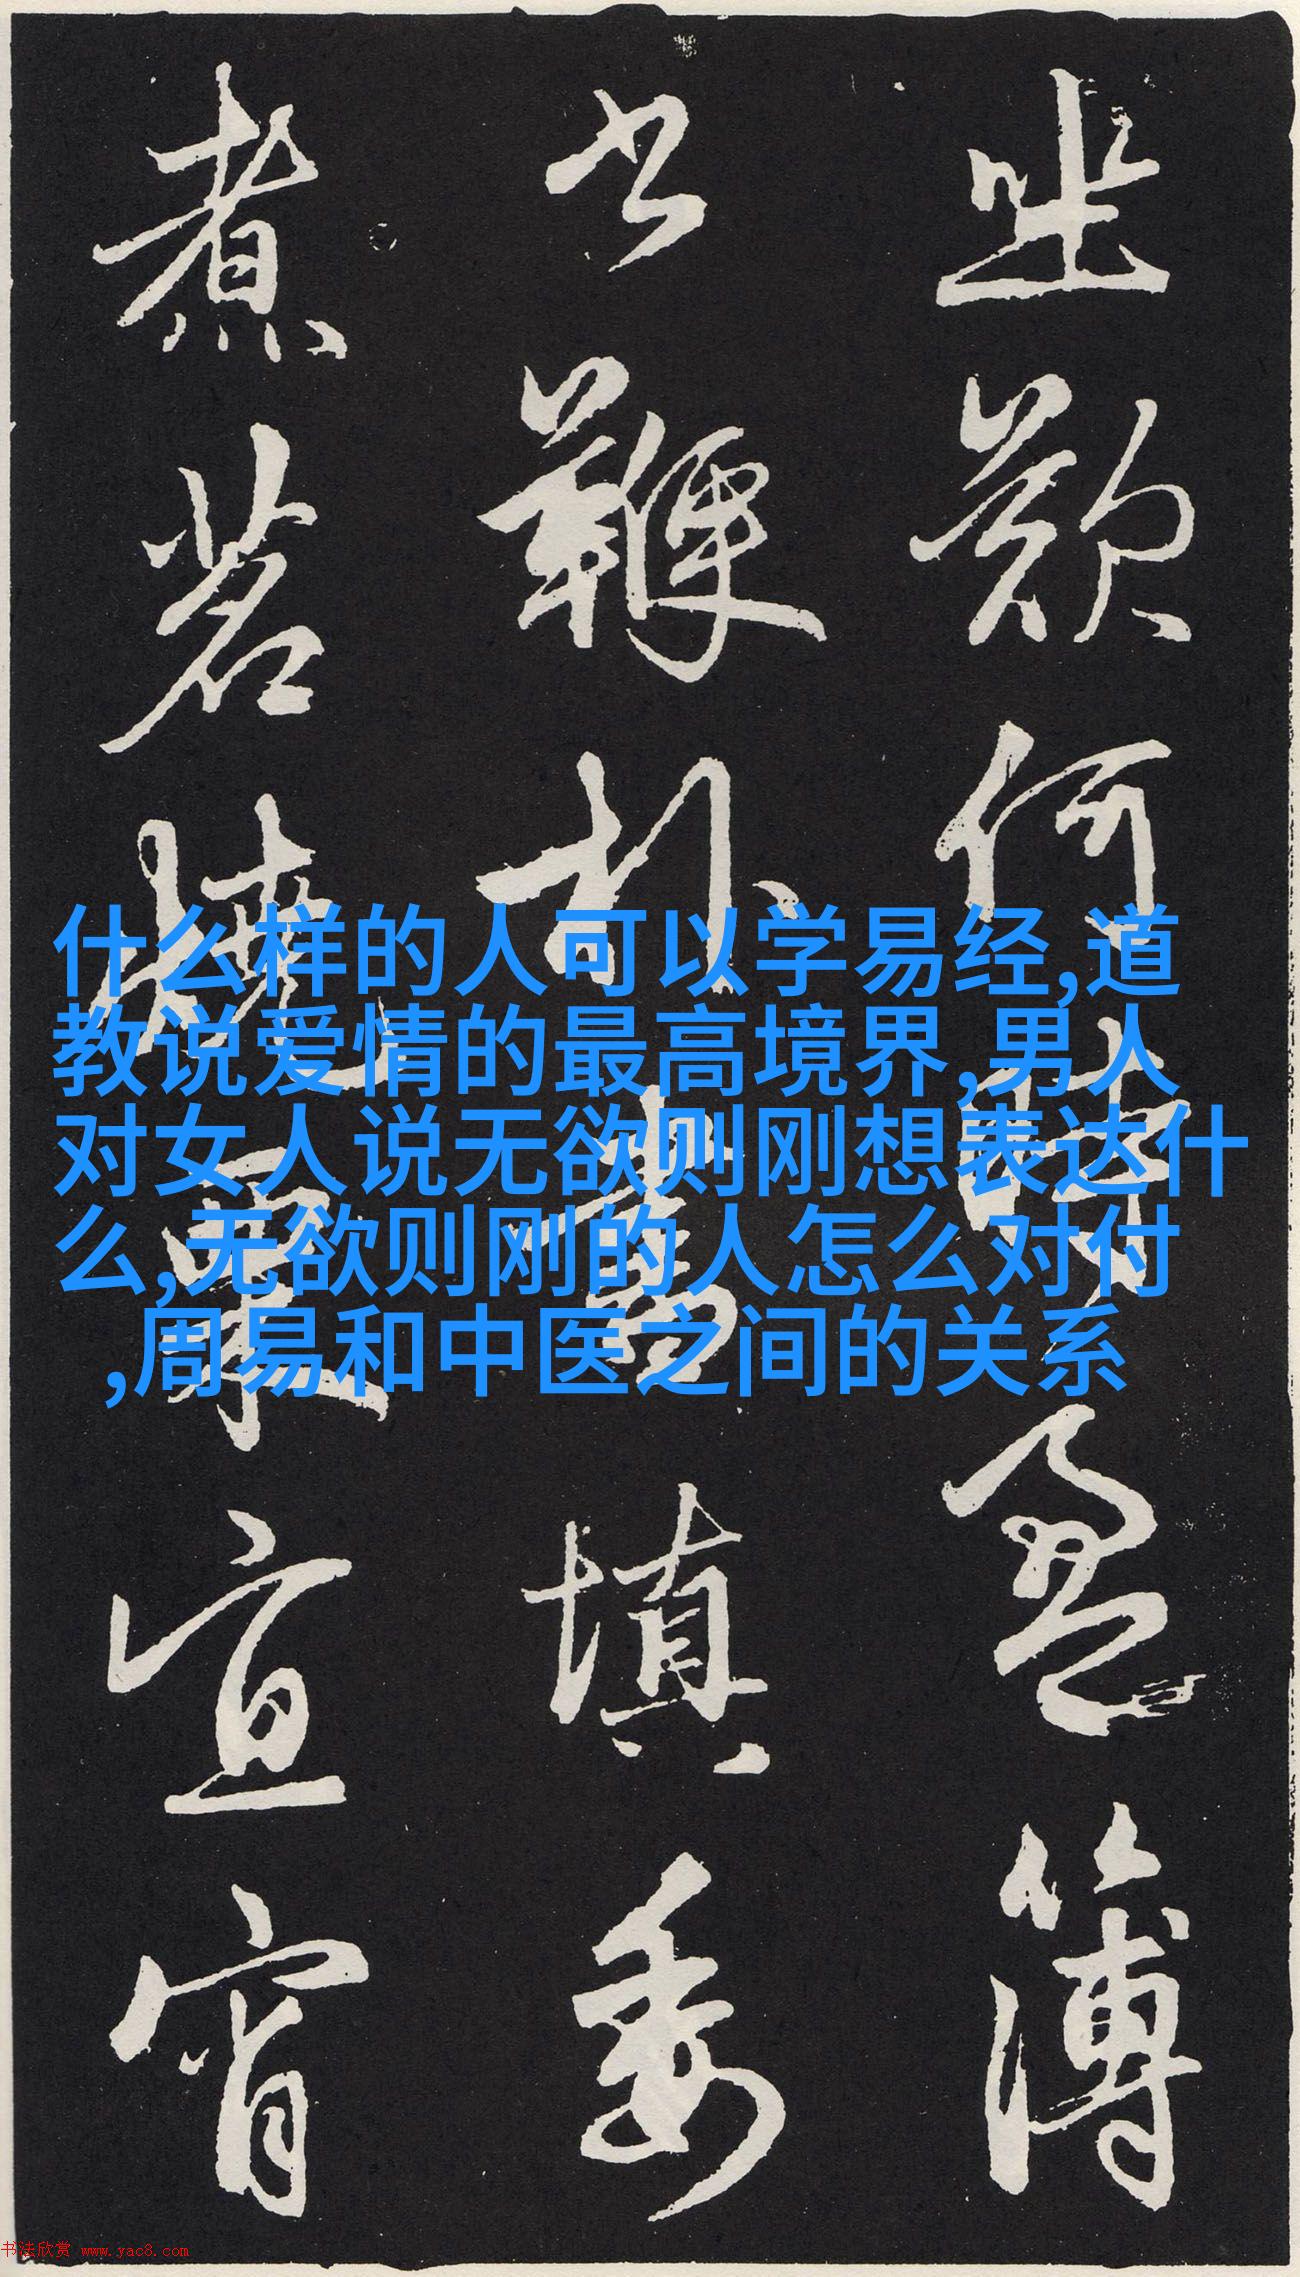 何時盈簿
書鞭扑晝填委
煮茗燒栗宜宵
什么样的人可以学易经,道
教说爱情的最高境界,男人
对女人说无欲则刚想表达什
么,无欲则刚的人怎么对付
,周易和中医之间的关系
书法欣赏 www.yac8.com